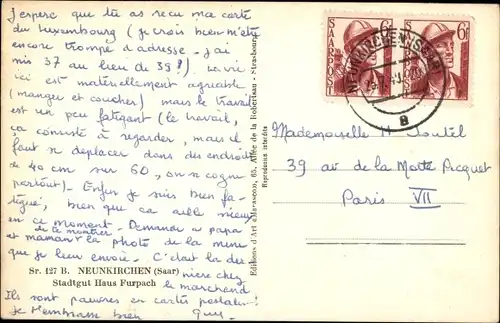 J'espère que tu as reçu ma carte
du Luxembourg (je crois bien m'être
encore trompé d'adresse. j'ai
mis 37 au lieu de 39!) La vie
ici est matériellement agréable
(manger et coucher) mais le travail
est un peu fatigant (le travail,
ça consiste à regarder, mais il
faut se déplacer dans des endroits
de 40 cm sur 60, on se cogne
partout). Enfin je suis bien fa-
tigué, bien que ça aille mieux
en ce moment. Demande à papa
et maman de te montrer la photo de la mine
que je leur envoie. C'était la der
nière chez
le marchand
Ils sont pauvres en cartes postales!
Je t'embrasse bien Guy
Sr. 127 B. NEUNKIRCHEN (Saar)
Stadtgut Haus Furpach
Editions d'Art 65, Allée de la Robertsau - Strasbourg
Reproduction interdite
SAARPOST 6F
SAARPOST 6F
NEUNKIRCHEN (SAAR)
B
Mademoiselle H
39 av de la Motte Picquet
Paris VII